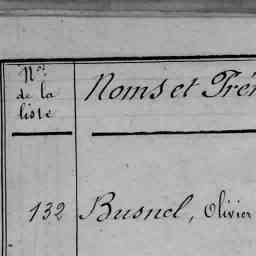 Nos
de la
liste
Noms et Pré
132 Busnel, Olivier